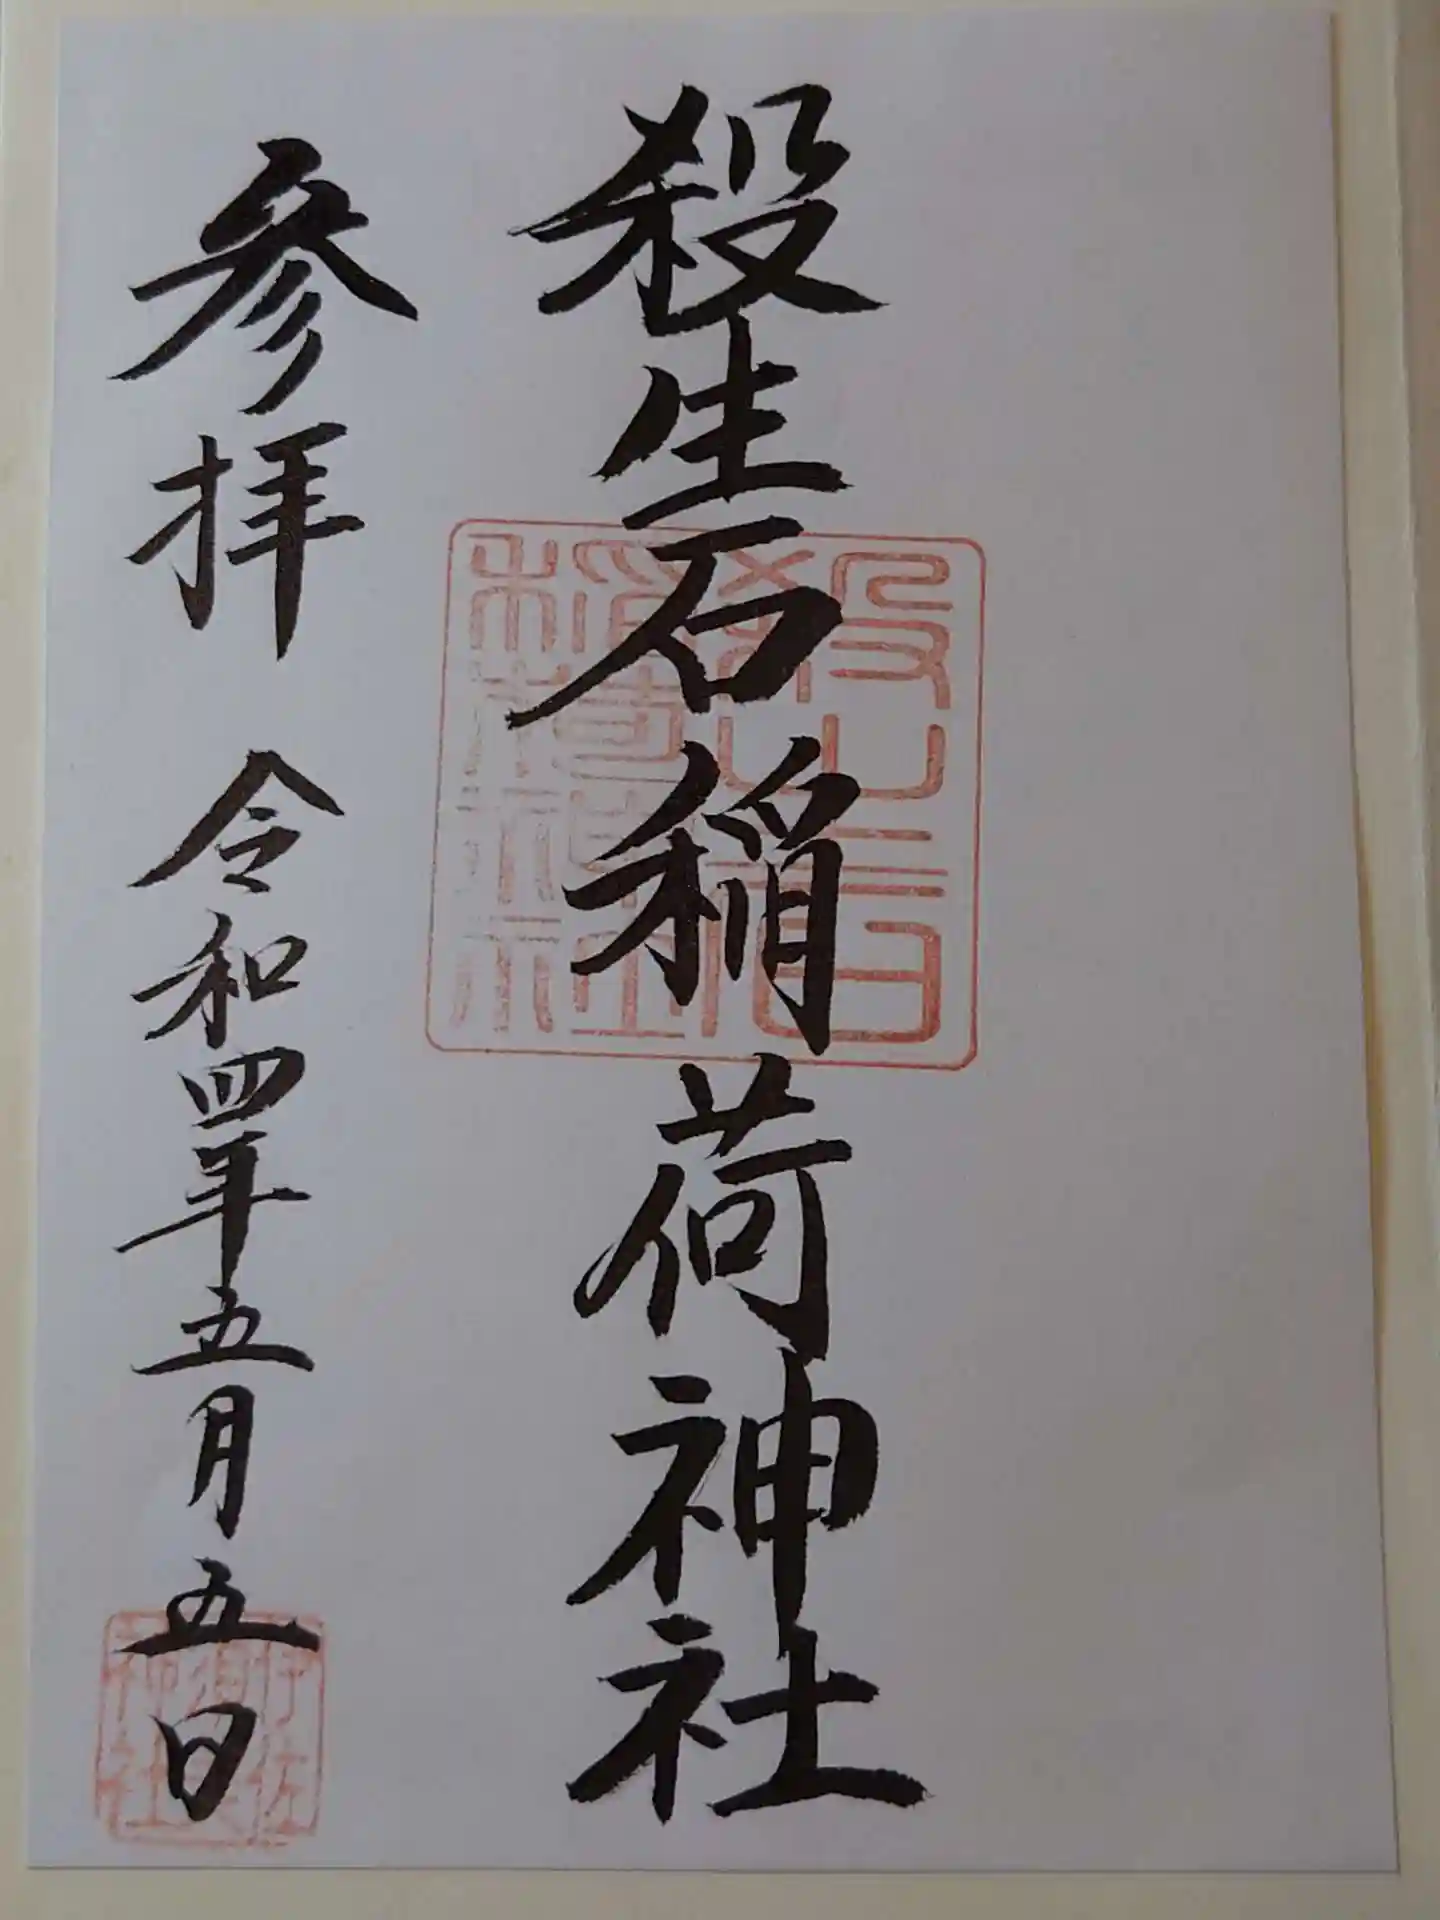 殺生石稲荷神社
参拝 令和四年五月五日